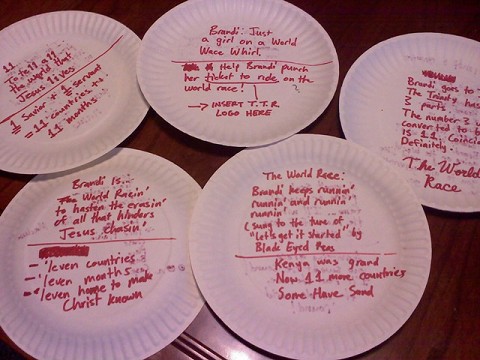 11
to tell all
the world that
Jesus lives
1/2 Savior + 1/2 servant
= 11 countries in
11 months
Brandi: Just
a girl on a World
Wace Whirl.
Help Brandi punch
her ticket to ride on the
world race!
?
→ INSERT T.T.R
LOGO HERE
Brandi goes to
The Trinity has
3 parts
The number 3
converted to b
is 11. Coinci
Definitely.
The World
Race
Brandi Is..
World Racin'
to hasten the erasin'
of all that hinders
Jesus chasin'
- 'leven countries
- 'leven months
- 'leven home to make
Christ known
The World Race:
Brandi keeps runnin'
runnin' and runnin'
runnin'
(sung to the tune of
"let's get it started" by
Black Eyed Peas
Kenya was grand
Now 11 more countries
Some Have Sand